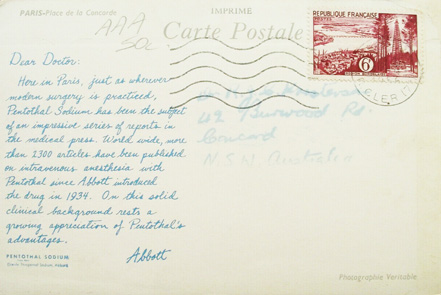 PARIS-Place de la Concorde
IMPRIME
AAA
50c
Carte Postale
RÉPUBLIQUE FRANÇAISE
POSTES
6F
Dear Doctor:
Here in Paris, just as wherever
modern surgery is practiced,
Pentothal Sodium has been the subject
of an impressive series of reports in
the medical press. World wide, more
than 2300 articles have been published
on intravenous anesthesia with
Pentothal since Abbott introduced
the drug in 1934. On this solid
clinical background rests a
growing appreciation of Pentothal's
advantages.
Abbott
42 Burwood Rd.
Concord
N.S.W. Australia
PENTOTHAL SODIUM
Photographie Veritable